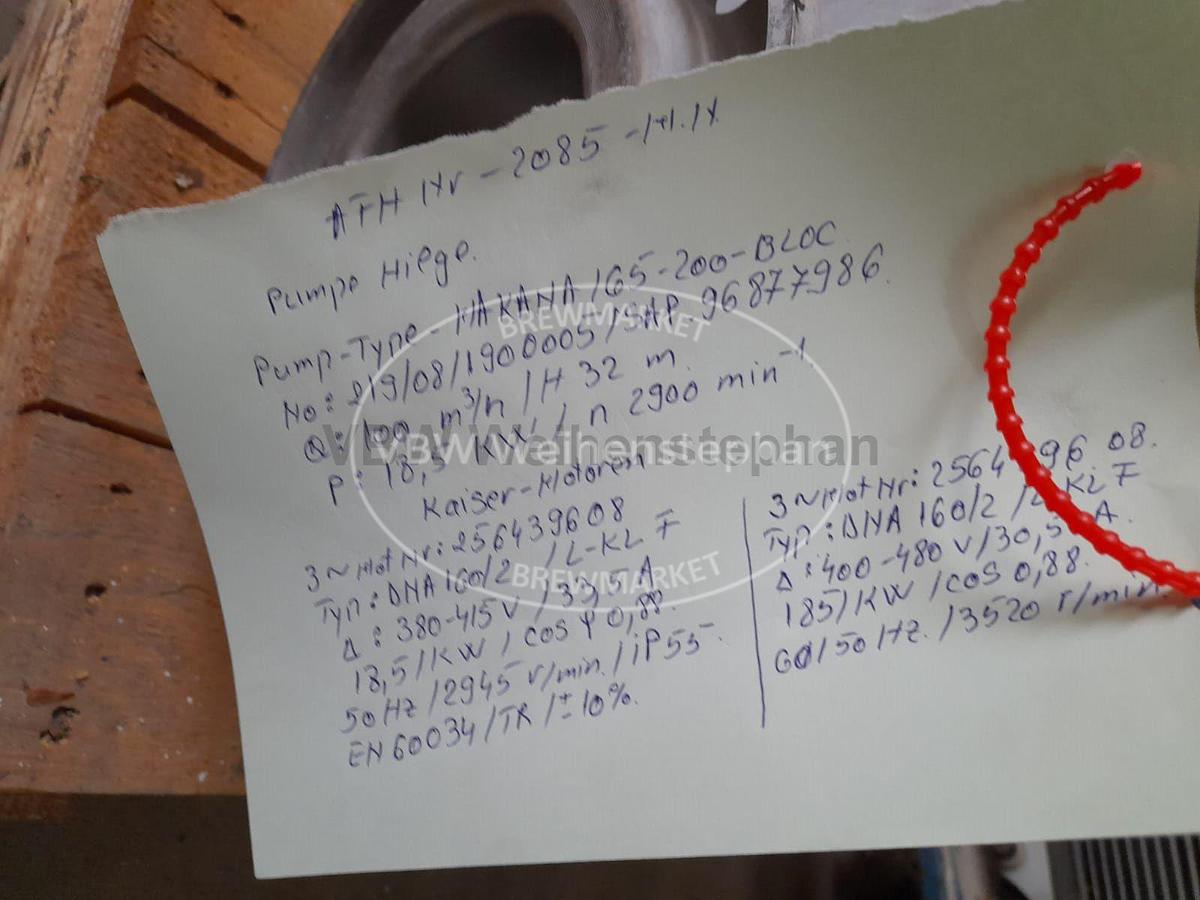 ATH Nr - 2085 -
Pumpe Hilge.
Pump-Type - HAKANA /65-200-BLOC
No: 219/08/1900005/SAP. 96877986.
Q: 100 m³/n / H 32 m.
P: 18,5 KW / n 2900 min⁻¹
Kaiser-Motoren
3~Mot Nr: 256439608
Typ: DNA 160/2 /L-KL F
Δ: 380-415 V / 33,5 A
18,5/KW / cos φ 0,88.
50 Hz /2945 r/min. / iP55
EN 60034 / TR / ± 10%.
3~Mot Nr: 2564 96 08.
Typ: DNA 160/2 / KL F
Δ: 400-480 V/30,5 A.
185/KW / cos 0,88.
60/50 Hz. /3520 r/min.
BREWMARKET
VBW Weihenstepparan
VBW Weihenstepparan
BREWMARKET